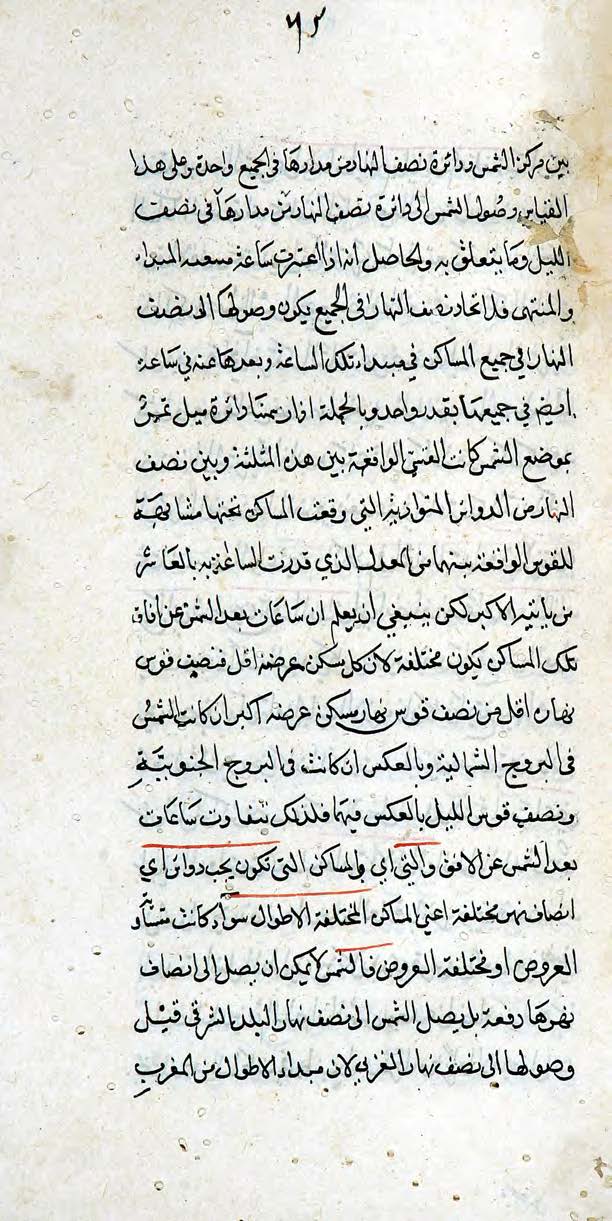 ٦٢
بين مركز الشمس ودائرة نصف النهار من مدارها في الجميع واحدة وعلى هذا
القياس وصول الشمس الى دائرة نصف النهار من مدارها في نصف
الليل وما يتعلق به والحاصل انه اذا اعتبرت ساعة المبداء
والمنتهى فلاتحاد نصف النهار في الجميع يكون وصولها الى نصف
النهار في جميع المساكن في مبداء تلك الساعة وبعدها عنه في ساعة
ايضا في جميعها بقدر واحد وبالجملة اذا رسمنا دائرة ميل تمر
بموضع الشمس كانت القسي الواقعة بين هذه المثلثة وبين نصف
النهار من الدوائر المتوازية التي وقعت المساكن تحتها مشابهة
للقوس الواقعة بينهما من المعدل الذي قدرت الساعة به بالعاشر
من ثانية الاكر لكن ينبغي ان يعلم ان ساعات بعد الشمس عن افاق
تلك المساكن يكون مختلفة لان كل مسكن عرضه اقل فنصف قوس
نهاره اقل من نصف قوس نهار مسكن عرضه اكبر ان كانت الشمس
في البروج الشمالية وبالعكس ان كانت في البروج الجنوبية
ونصف قوس الليل بالعكس فيهما فلذلك تتفاوت ساعات
بعد الشمس عن الافق والتي اي والمساكن التي تكون يجب دوائر اي
انصاف نهر مختلفة اعني المساكن المختلفة الاطوال سواء كانت متساوية
العروض او مختلفة العروض فالشمس لا يمكن ان يصل الى انصاف
نهرها دفعة بل يصل الشمس الى نصف نهار البلد الشرقي قبل
وصولها الى نصف نهار الغربي لان مبداء الاطوال من المغرب